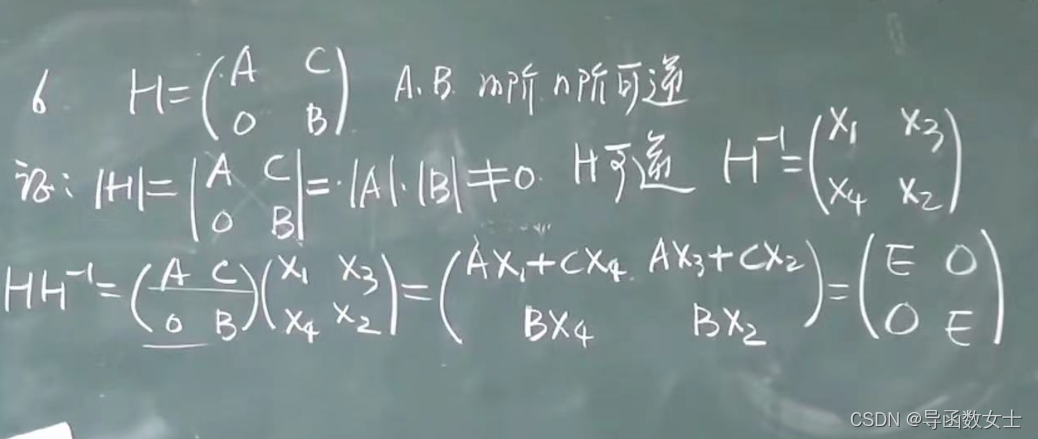 6. H=(A C
O B) A.B. m阶.n阶可逆
证: |H|=|A C
O B|=·|A|·|B|≠0. H可逆 H⁻¹=(X₁ X₃
X₄ X₂)
HH⁻¹=(A C
O B)(X₁ X₃
X₄ X₂)=(AX₁+CX₄ AX₃+CX₂
BX₄ BX₂)=(E O
O E)
CSDN @导函数女士